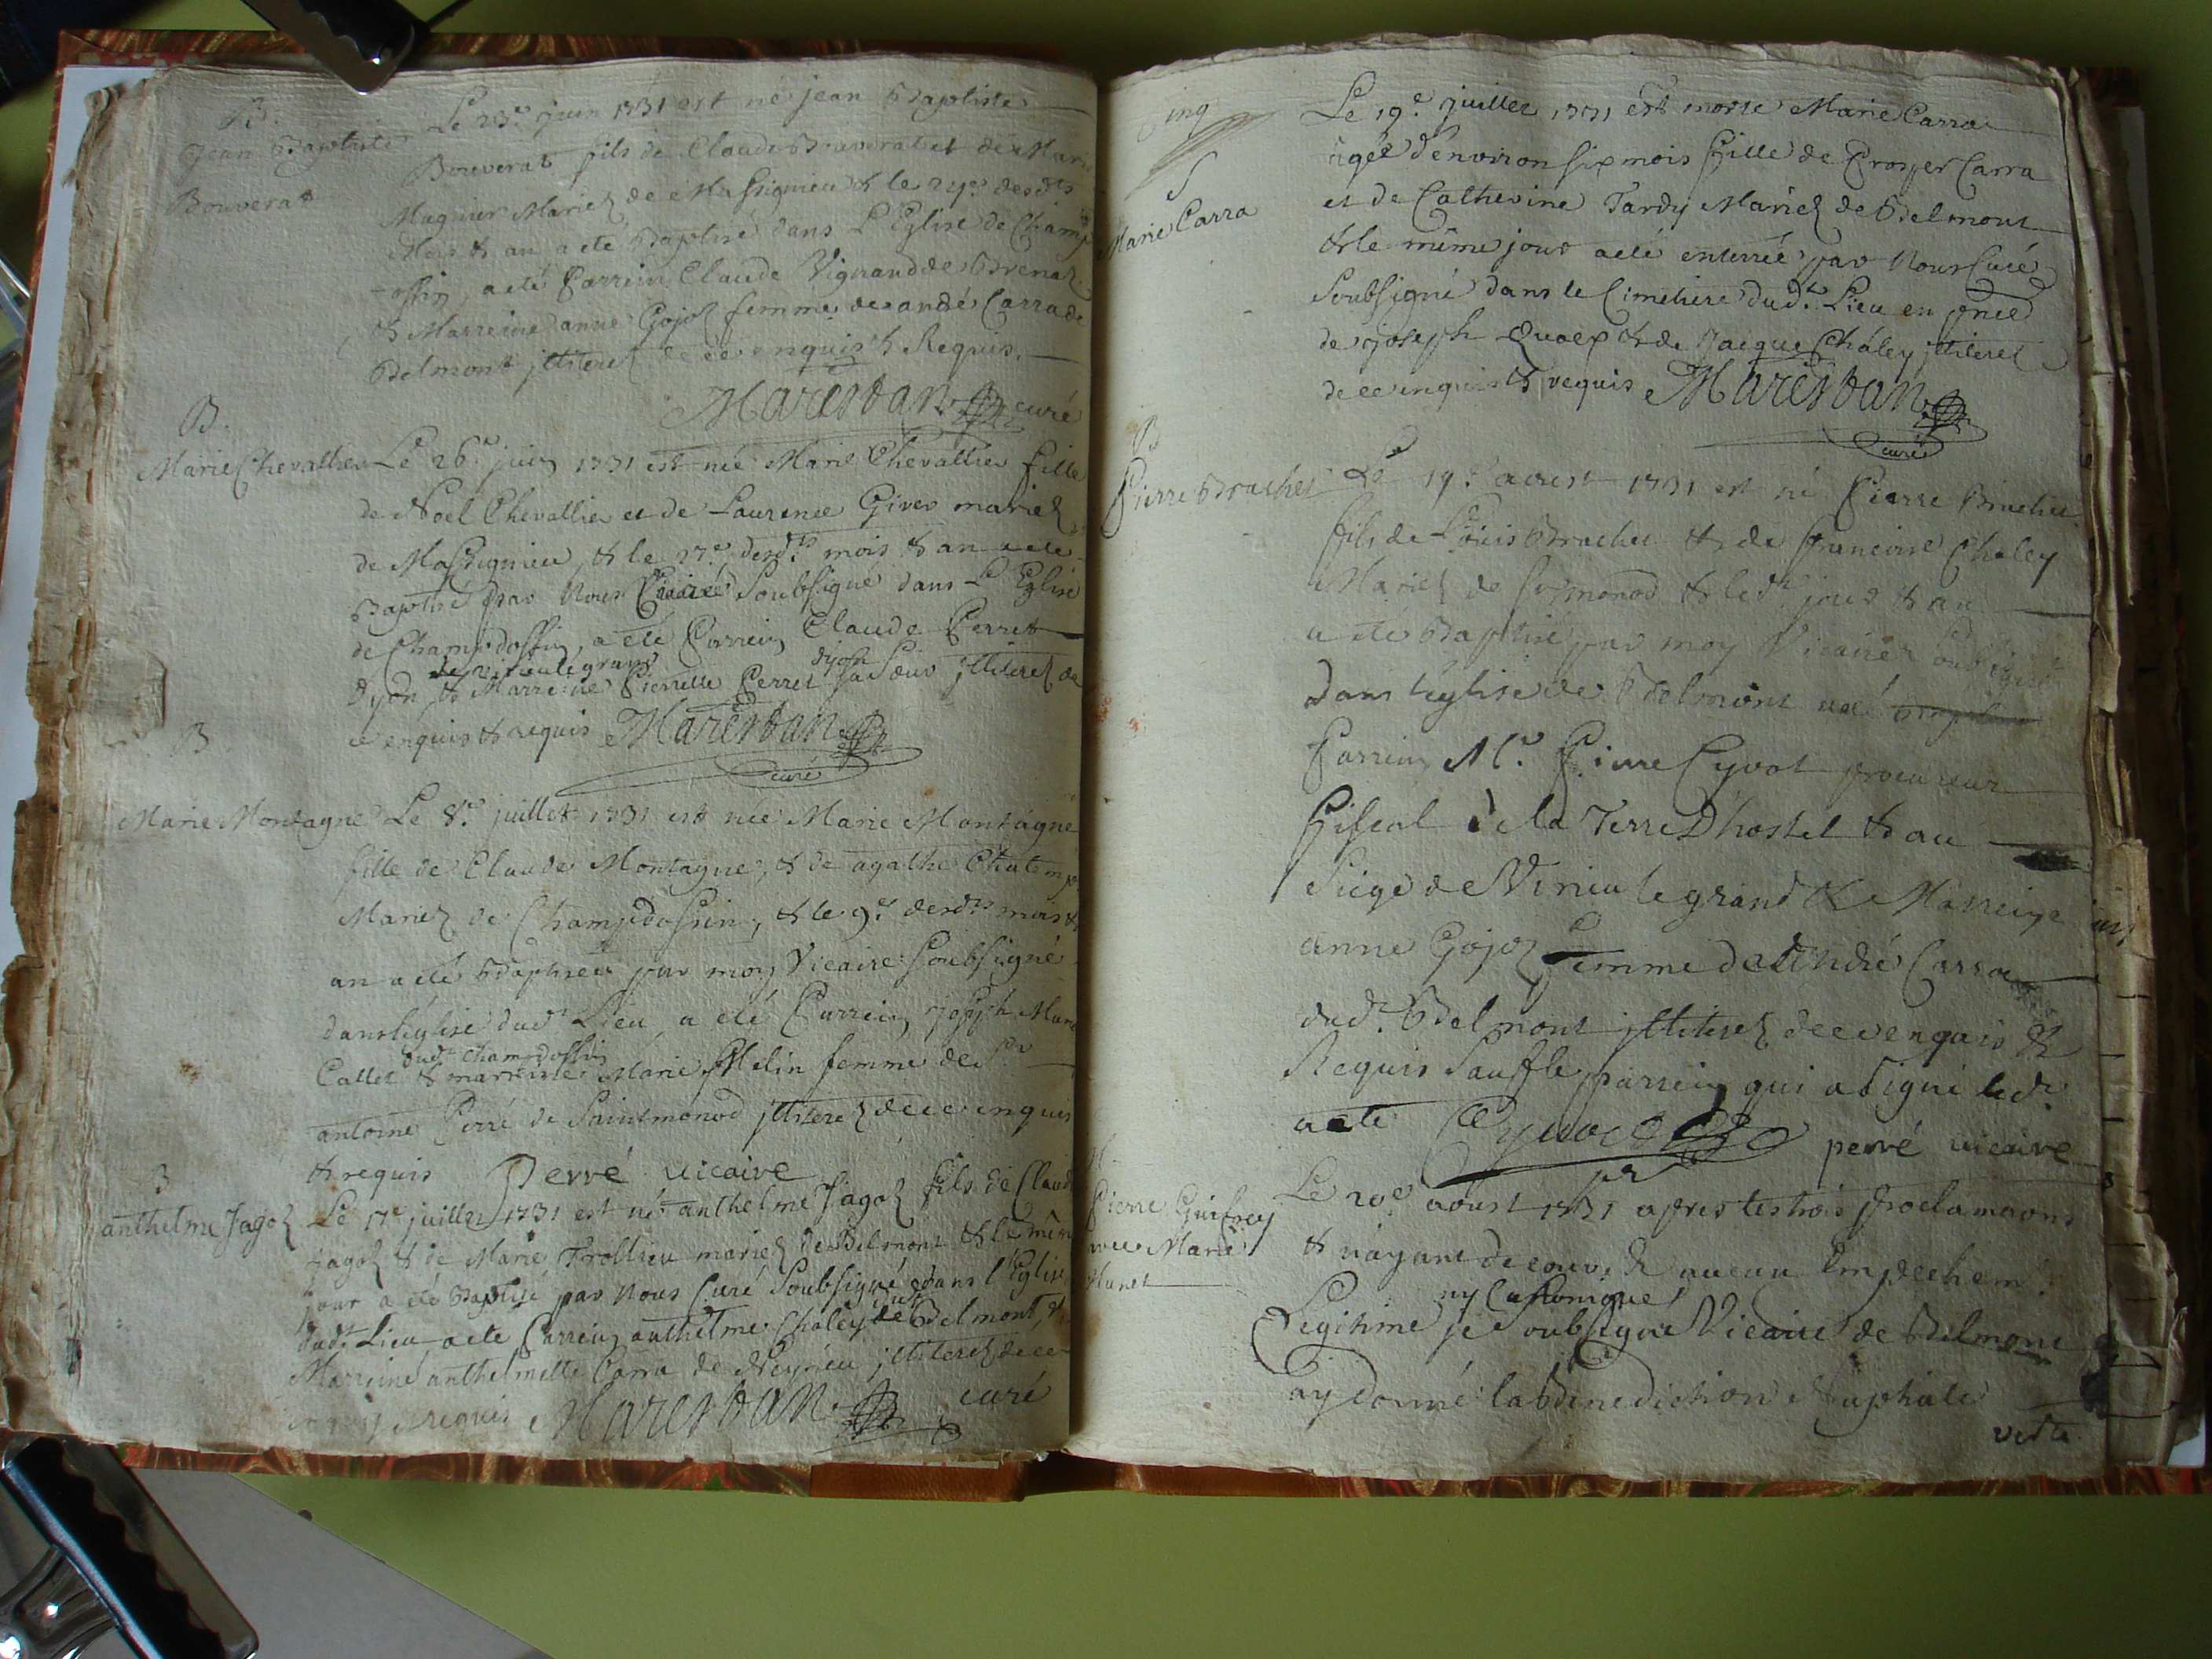 B.
Jean Baptiste
Bouverat
Le 23e. juin 1731 est né jean Baptiste
Bouverat fils de Claude Bouverat et de Marie
Mugnier Mariez de Massignieu & le 24e. desdts
Mois & an a eté Baptisé dans L'Eglise de Champ
-ossin, a eté Parrein Claude Vignand de Brenaz
& Marreine anne Gojoz femme de andé Carra de
Belmont jlliterez de ce enquis & Requis.
Marestan curé
B.
Marie Chevallier
Le 26e. juin 1731 est née Marie Chevallier fille
de Noel Chevallier et de Laurence Giver mariez
de Massignieu, & le 27e. desdts mois & an a eté
Baptisé par Nous Curé Soubsigné dans L'Eglise
de Champdossin, a eté Parrein Claude Perret
de virieu le grand dyon
dyon & Marreine Pierrette Perret sa Seur jlliterez de
ce enquis & requis Marestan
curé
B
Marie Montagne
Le 8e. juillet 1731 est née Marie Montagne
fille de Claude Montagne, & de agathe
Mariez de Champdossin, & le 9e. desdts mois &
an a eté Baptisée par moy Vicaire Soubsigné
dans l'église dudt Lieu a eté Parrein joseph
dudt Champdossin
Callet & marreine Marie Melin femme de Sr
antoine Perré de Saintmonod jlliterez de ce enquis
& requis Perré vicaire
B
anthelme Jagoz
Le 17e juillet 1731 est né anthelme Jagoz fils de Claude
Jagoz & de Marie Trollieu mariez de Belmont & le même
jour a eté Baptisé par Nous Curé Soubsigné dans l'Eglise
dudt Lieu a eté Parrein anthelme Chaley de Belmont, &
Marreine anthelmette Carra de Neyrieu jlliterez de ce
enquis & requis Marestan curé
cinq
S
Marie Carra
Le 19e. juillet 1731 est morte Marie Carra
agée d'environ six mois fille de Prosper Carra
et de Catherine Tardy Mariez de Belmont
& le même jour a eté enterrée par Nous Curé
Soubsigné dans le Cimetiere dudt. Lieu en pnce
de joseph & de Jacque Chaley jlliterez
de ce enquis & requis Marestan
curé
B
Pierre Brachet
Le 19e. aoust 1731 est né Pierre Brachet
fils de Louis Brachet & de francoise Chaley
Mariez de & ledt jour & an
a eté Baptisé par moy Vicaire soubsigné
dans l'eglise de Belmont a eté
Parrein Mr. Pierre Cyvot procureur
fiscal de la Terre D'hostel & au
Siege de Virieu le grand & Marreine
anne Gojoz femme de André Carra
dudt. Belmont jlliterez de ce enquis &
Requis Sauf le parrein qui a signé ledt
acte Cyvoct perré vicaire
Pierre Guifrey
avec Marie
Munet
Le 20e aoust 1731 apres les trois proclamaons
& n'ayant decouvert aucun Empechemt
ny Canonique
Legitime je Soubsigné Vicaire de Belmont
ay donné la benediction Nuptiale